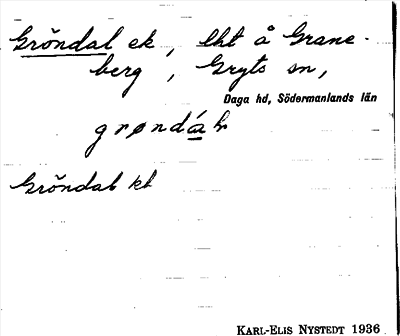 Gröndal ek, lht å Grane-
berg, Gryts sn,
Daga hd, Södermanlands län
grøndá̲l
Gröndal kt
KARL-ELIS NYSTEDT 1936